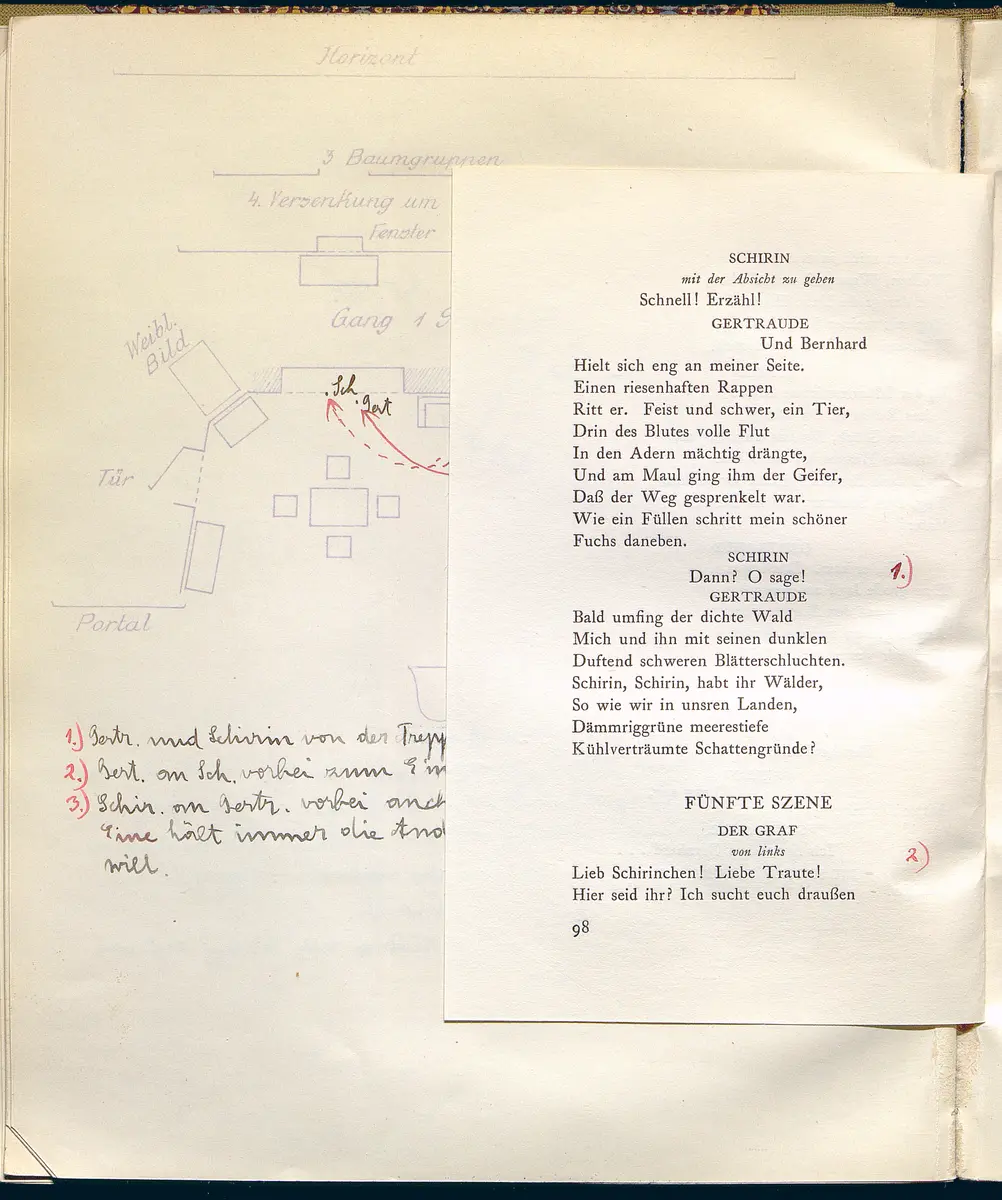 Horizont
3 Baumgruppen
4. Versenkung um
Fenster
Gang 1
Weibl.
Bild
. Sch.
. Gert
Tür
Portal
1.) Gertr. und Schirin von der Trepp
2.) Gert. an Sch. vorbei zum
3.) Schir. an Gertr. vorbei auch
Eine hält immer die And
will.
SCHIRIN
mit der Absicht zu gehen
Schnell! Erzähl!
GERTRAUDE
Und Bernhard
Hielt sich eng an meiner Seite.
Einen riesenhaften Rappen
Ritt er. Feist und schwer, ein Tier,
Drin des Blutes volle Flut
In den Adern mächtig drängte,
Und am Maul ging ihm der Geifer,
Daß der Weg gesprenkelt war.
Wie ein Füllen schritt mein schöner
Fuchs daneben.
SCHIRIN
Dann? O sage! 1.)
GERTRAUDE
Bald umfing der dichte Wald
Mich und ihn mit seinen dunklen
Duftend schweren Blätterschluchten.
Schirin, Schirin, habt ihr Wälder,
So wie wir in unsren Landen,
Dämmriggrüne meerestiefe
Kühlverträumte Schattengründe?
FÜNFTE SZENE
DER GRAF
von links 2)
Lieb Schirinchen! Liebe Traute!
Hier seid ihr? Ich sucht euch draußen
98